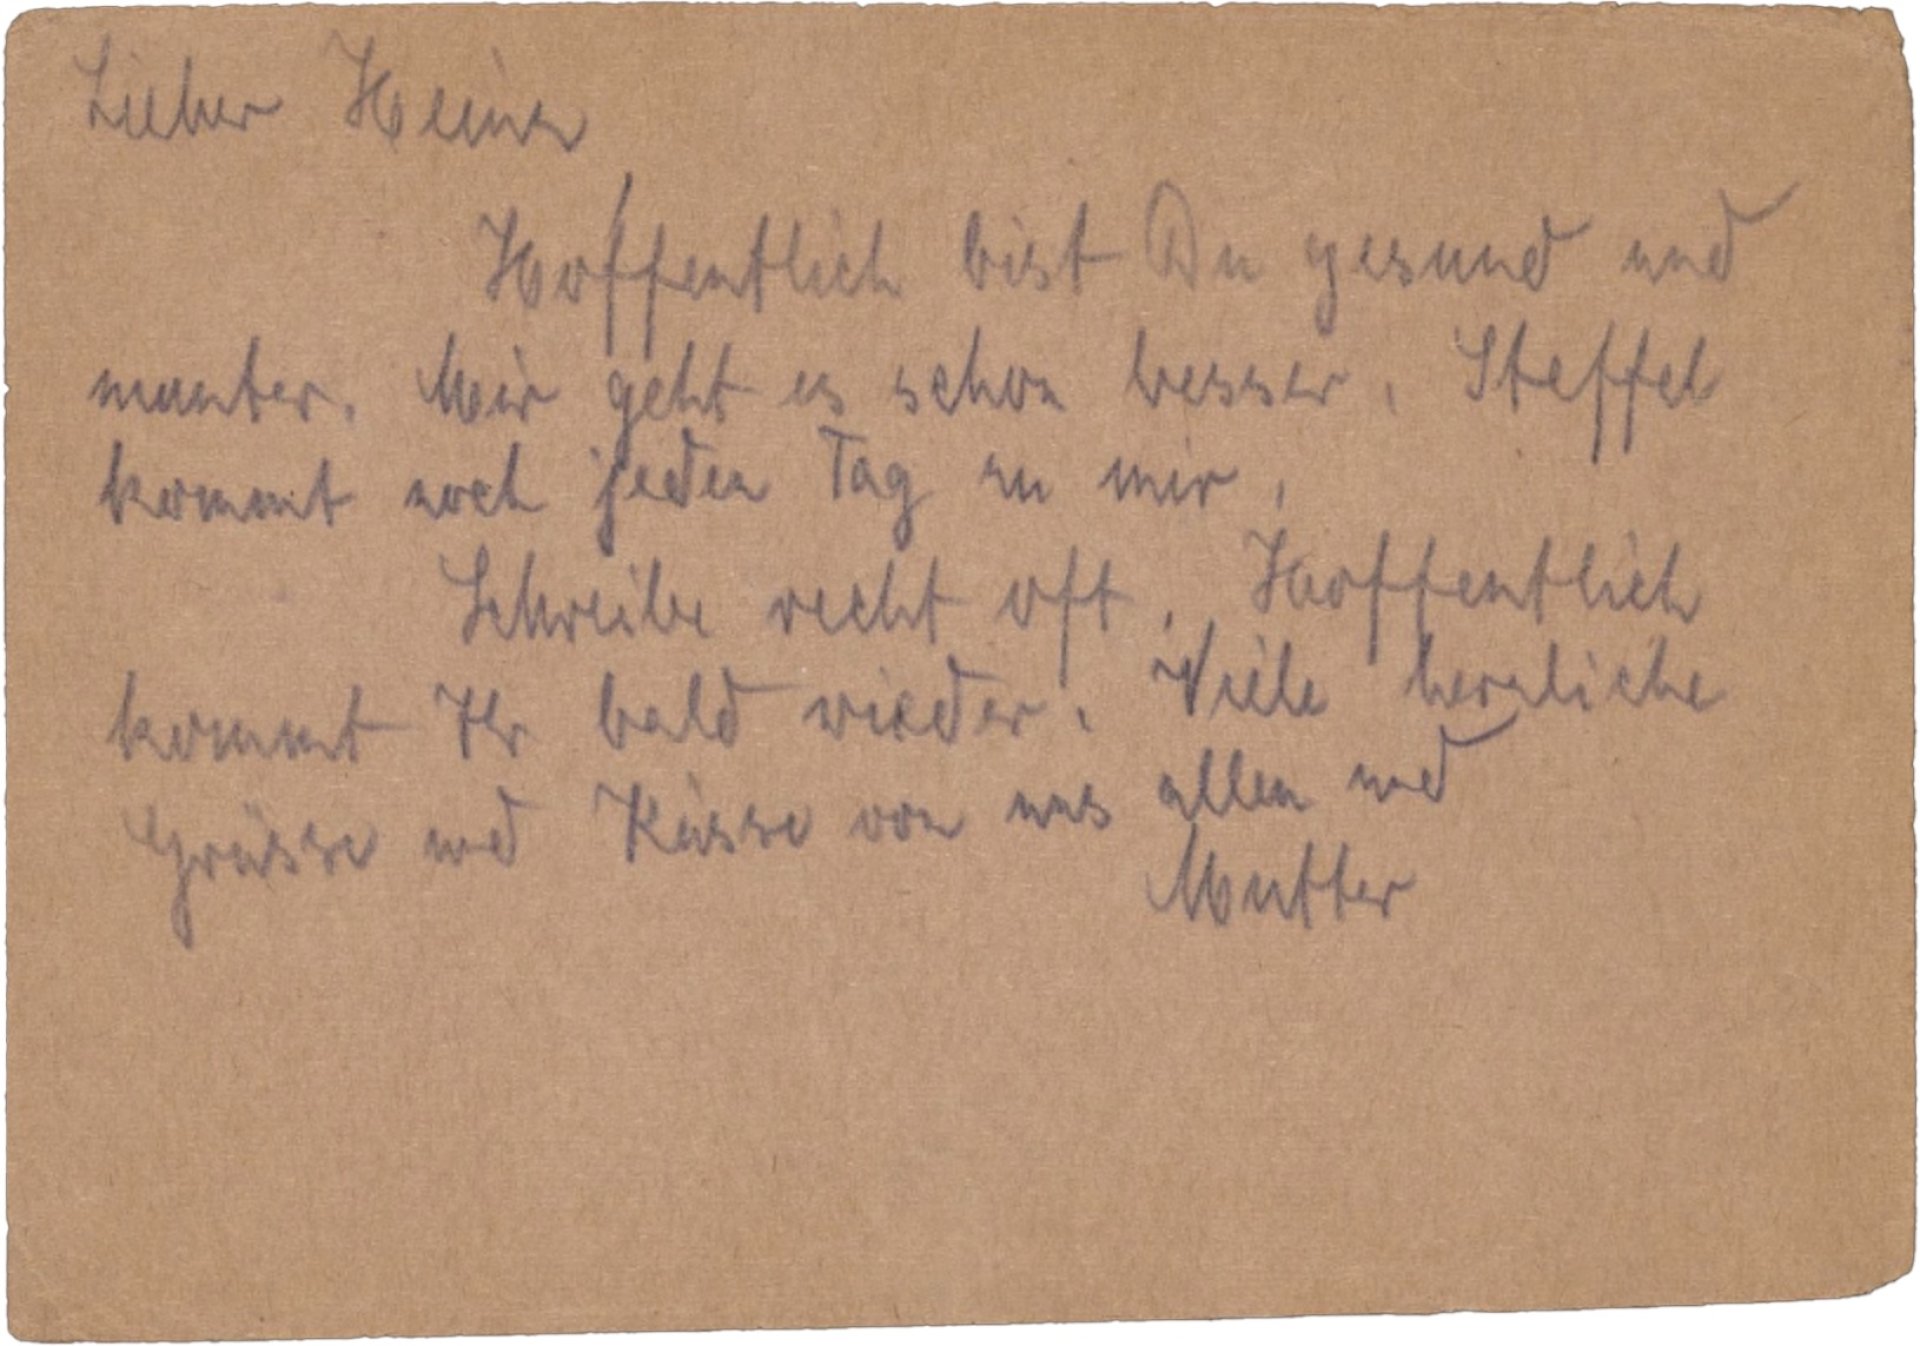 Lieber Heinz
Hoffentlich bist Du gesund und
munter. Mir geht es schon besser. Steffel
kommt noch jeden Tag zu mir.
Schreibe recht oft. Hoffentlich
kommt Ihr bald wieder. Viele herzliche
Grüsse und Küsse von uns allen und
Mutter